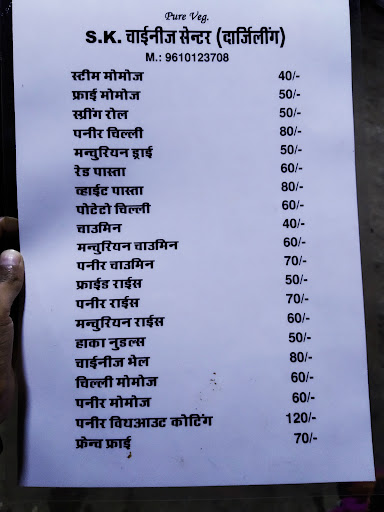 Pure Veg.
S.K. चाईनीज सेन्टर (दार्जिलींग)
M.: 9610123708
स्टीम मोमोज 40/-
फ्राई मोमोज 50/-
स्प्रींग रोल 50/-
पनीर चिल्ली 80/-
मन्चुरियन ड्राई 50/-
रेड पास्ता 60/-
व्हाईट पास्ता 80/-
पोटेटो चिल्ली 60/-
चाउमिन 40/-
मन्चुरियन चाउमिन 60/-
पनीर चाउमिन 70/-
फ्राईड राईस 50/-
पनीर राईस 70/-
मन्चुरियन राईस 60/-
हाका नुडल्स 50/-
चाईनीज भेल 80/-
चिल्ली मोमोज 60/-
पनीर मोमोज 60/-
पनीर विथआउट कोटिंग 120/-
फ्रेन्च फ्राई 70/-